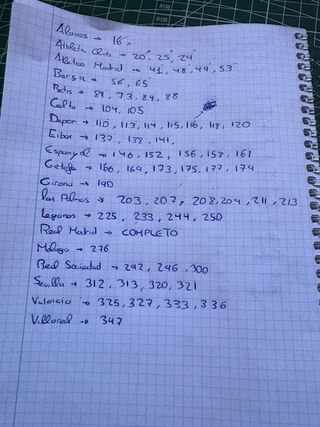 Alaves → 16
Athletic Club → 20, 25, 29
Atletico Madrid → 41, 48, 49, 53
Barça → 56, 65
Betis → 81, 73, 84, 88
Celta → 104, 105
Depor → 110, 113, 114, 115, 116, 118, 120
Eibar → 137, 139, 141,
Espanyol → 146, 152, 156, 158, 161
Getafe → 166, 169, 173, 175, 177, 179
Girona → 190
Las Palmas → 203, 207, 208, 209, 211, 213
Leganes → 225, 233, 244, 250
Real Madrid → COMPLETO
Malaga → 276
Real Sociedad → 292, 296, 300
Sevilla → 312, 313, 320, 321
Valencia → 325, 327, 333, 336
Villareal → 347